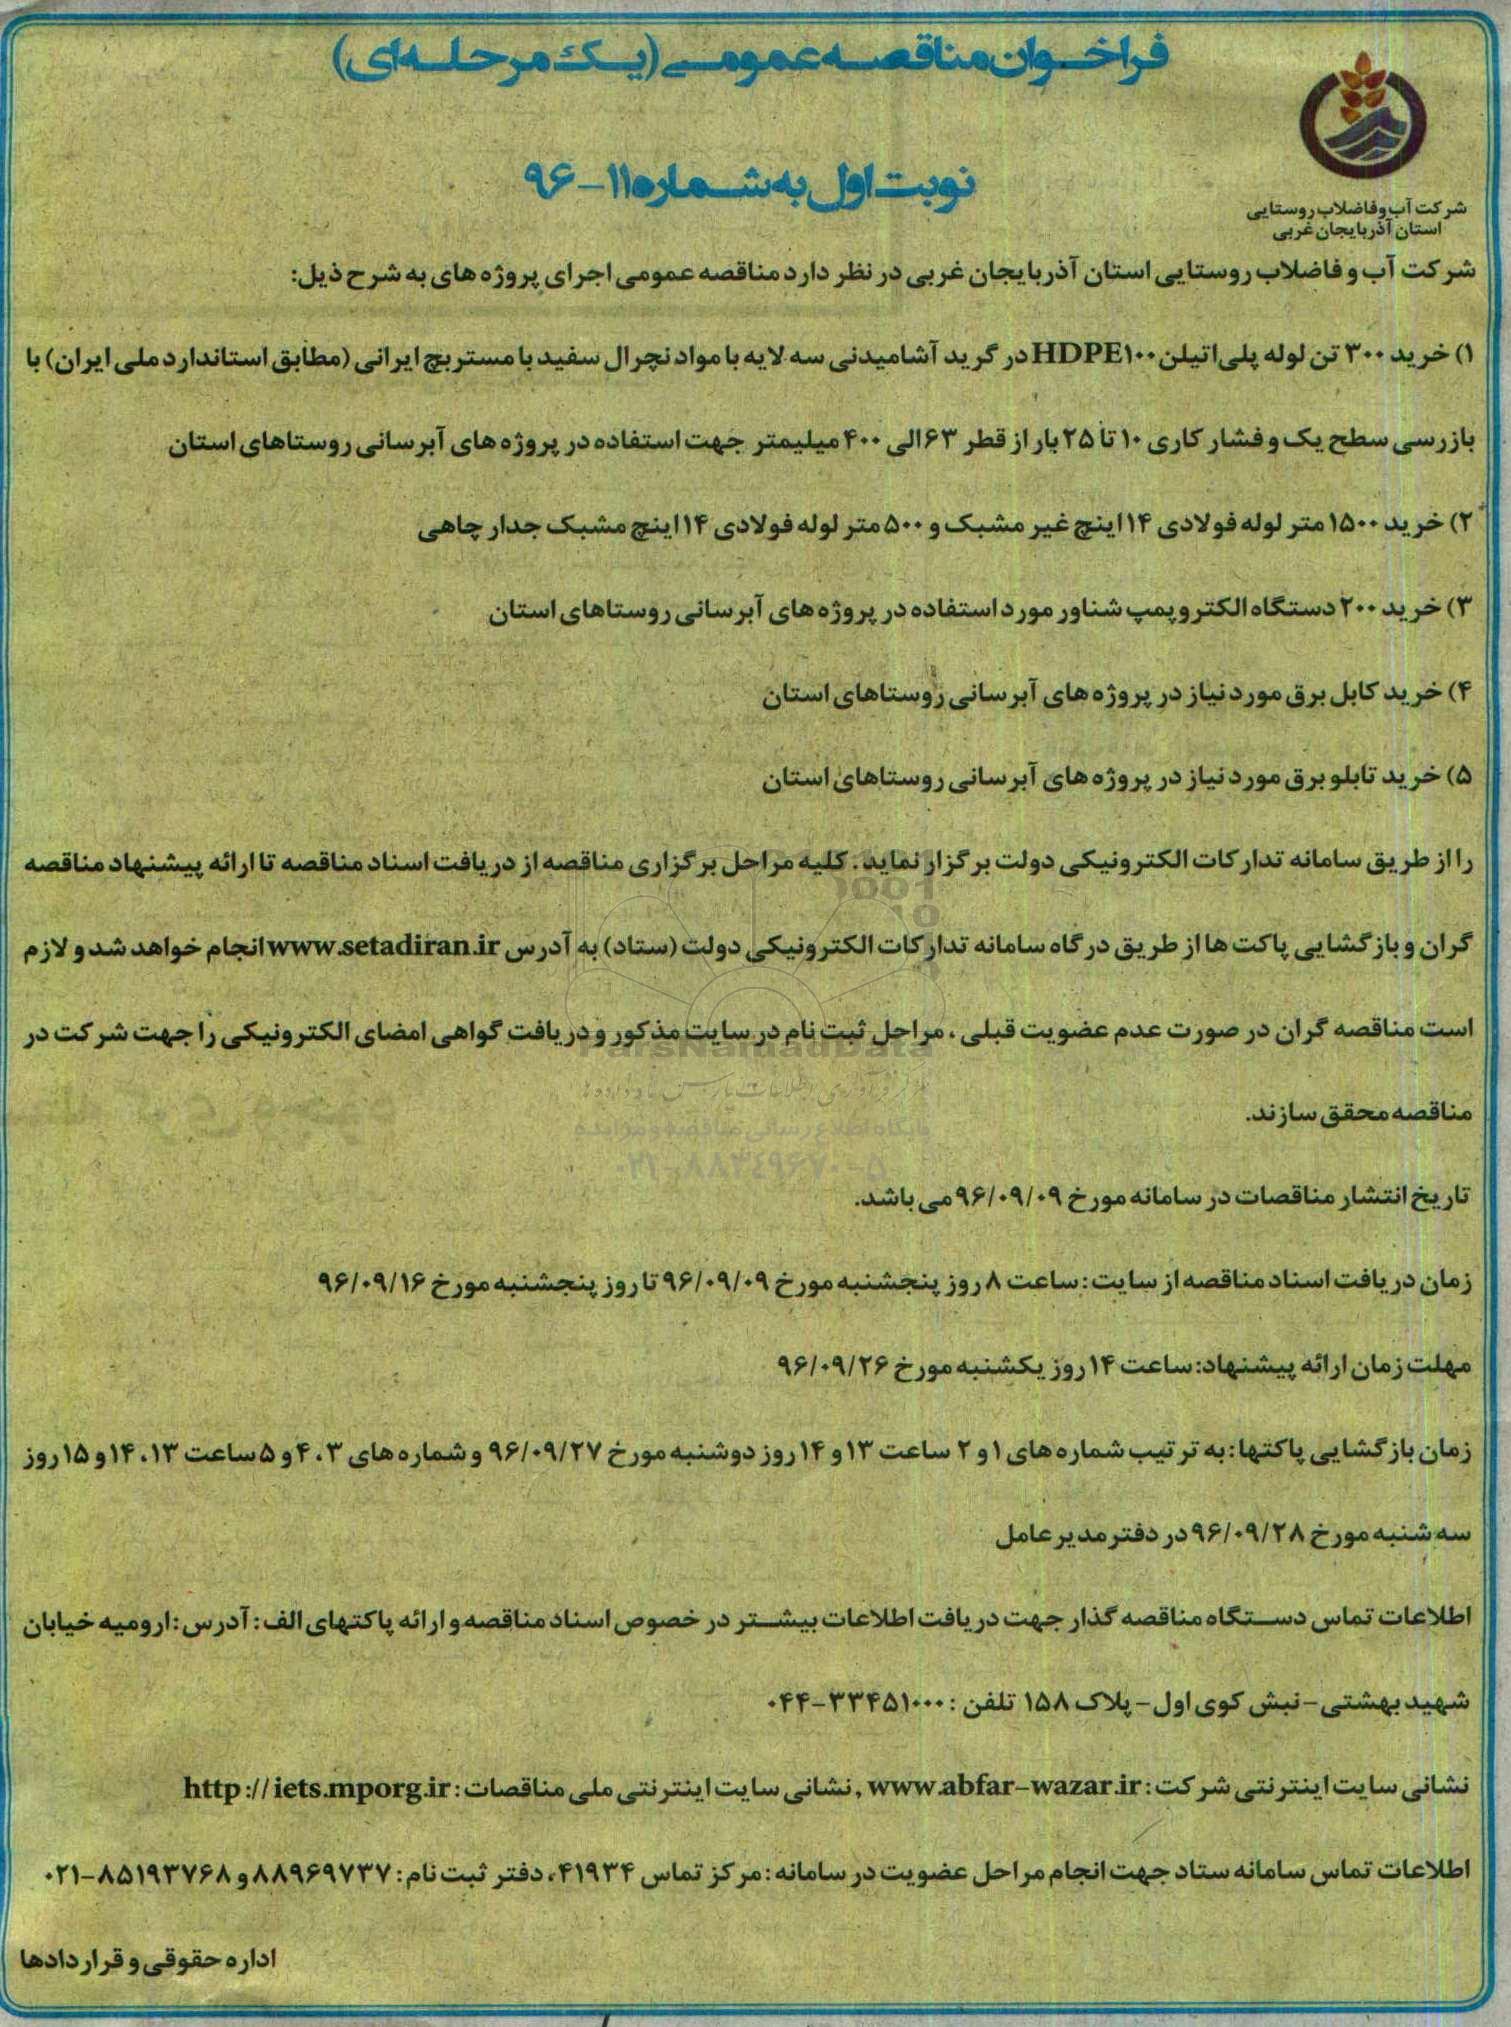 فراخوان مناقصه عمومی (یک مرحله‌ای)
نوبت اول به شماره ۱۱-۹۶
شرکت آب و فاضلاب روستایی
استان آذربایجان غربی
شرکت آب و فاضلاب روستایی استان آذربایجان غربی در نظر دارد مناقصه عمومی اجرای پروژه های به شرح ذیل:
۱) خرید ۳۰۰ تن لوله پلی اتیلن HDPE۱۰۰ در گرید آشامیدنی سه لایه با مواد نچرال سفید با مستربچ ایرانی (مطابق استاندارد ملی ایران) با
بازرسی سطح یک و فشار کاری ۱۰ تا ۲۵ بار از قطر ۶۳ الی ۴۰۰ میلیمتر جهت استفاده در پروژه های آبرسانی روستاهای استان
۲) خرید ۱۵۰۰ متر لوله فولادی ۱۴ اینچ غیر مشبک و ۵۰۰ متر لوله فولادی ۱۴ اینچ مشبک جدار چاهی
۳) خرید ۲۰۰ دستگاه الکتروپمپ شناور مورد استفاده در پروژه های آبرسانی روستاهای استان
۴) خرید کابل برق مورد نیاز در پروژه های آبرسانی روستاهای استان
۵) خرید تابلو برق مورد نیاز در پروژه های آبرسانی روستاهای استان
را از طریق سامانه تدارکات الکترونیکی دولت برگزار نماید. کلیه مراحل برگزاری مناقصه از دریافت اسناد مناقصه تا ارائه پیشنهاد مناقصه
گران و بازگشایی پاکت ها از طریق درگاه سامانه تدارکات الکترونیکی دولت (ستاد) به آدرس www.setadiran.ir انجام خواهد شد و لازم
است مناقصه گران در صورت عدم عضویت قبلی، مراحل ثبت نام در سایت مذکور و دریافت گواهی امضای الکترونیکی را جهت شرکت در
ParsNamadData
مناقصه محقق سازند.
۰۲۱-۸۸۳۴۹۶۷۰-۵
تاریخ انتشار مناقصات در سامانه مورخ ۹۶/۰۹/۰۹ می باشد.
زمان دریافت اسناد مناقصه از سایت: ساعت ۸ روز پنجشنبه مورخ ۹۶/۰۹/۰۹ تا روز پنجشنبه مورخ ۹۶/۰۹/۱۶
مهلت زمان ارائه پیشنهاد: ساعت ۱۴ روز یکشنبه مورخ ۹۶/۰۹/۲۶
زمان بازگشایی پاکتها: به ترتیب شماره های ۱ و ۲ ساعت ۱۳ و ۱۴ روز دوشنبه مورخ ۹۶/۰۹/۲۷ و شماره های ۳، ۴ و ۵ ساعت ۱۳، ۱۴ و ۱۵ روز
سه شنبه مورخ ۹۶/۰۹/۲۸ در دفتر مدیر عامل
اطلاعات تماس دستگاه مناقصه گذار جهت دریافت اطلاعات بیشتر در خصوص اسناد مناقصه و ارائه پاکتهای الف: آدرس: ارومیه خیابان
شهید بهشتی - نبش کوی اول - پلاک ۱۵۸ تلفن: ۳۳۴۵۱۰۰۰-۰۴۴
نشانی سایت اینترنتی شرکت: www.abfar-wazar.ir , نشانی سایت اینترنتی ملی مناقصات: http://iets.mporg.ir
اطلاعات تماس سامانه ستاد جهت انجام مراحل عضویت در سامانه: مرکز تماس ۴۱۹۳۴، دفتر ثبت نام: ۸۸۹۶۹۷۳۷ و ۸۵۱۹۳۷۶۸-۰۲۱
اداره حقوقی و قراردادها